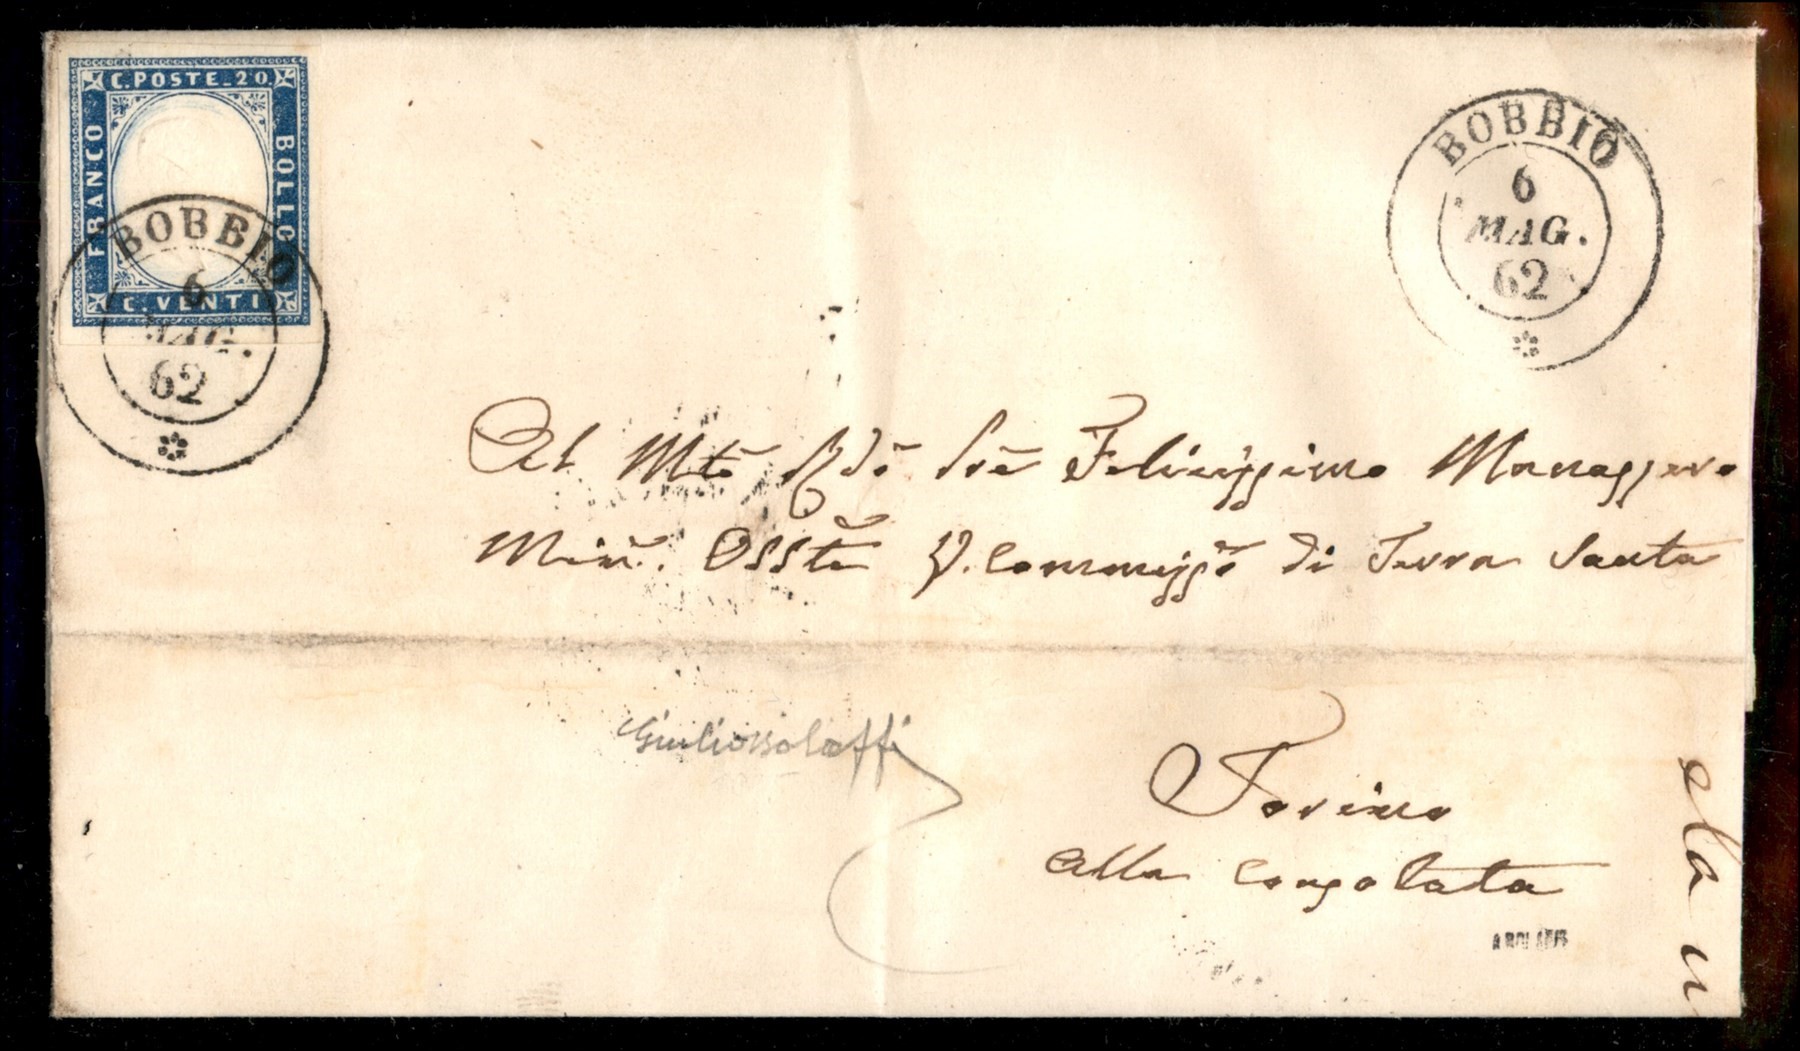 C. POSTE. 20.
FRANCO
BOLLO
C. VENTI
BOBBIO
6
MAG.
62
BOBBIO
6
MAG.
62
Al Mtõ Rdõ Prẽ Felicissimo Managgero
Min. Osste V. Commissõ di Terra Santa
Giulio Bolaffi
Torino
alla Consolata
A BOLAFFI